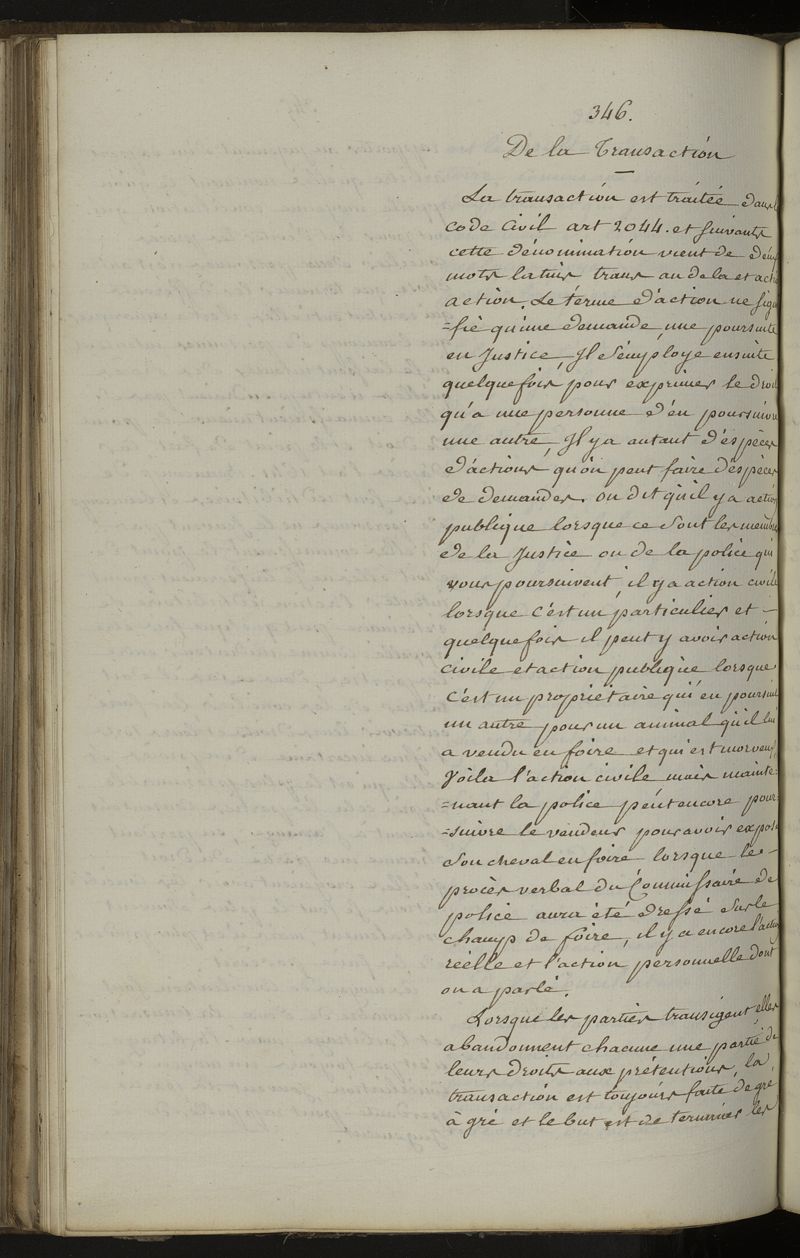 346.
De la Transaction
La transaction est traitée dans l
code Civil art 2044. et suivants
cette dénomination vient de deux
mots latins trans au dela et actio
action. Le terme d'action ne sign
=fie qu'une demande, une poursuite
en Justice, Il s'employe ensuite
quelquefois pour exprimer le droit
qu'a une personne d'en poursuivre
une autre, Il y a autant d'espèces
d'actions qu'on peut faire d'espèces
de demandes. on dit qu'il y a action
publique lorsque ce sont les membres
de la Justice ou de la police qui
vous poursuivent, il y a action civile
lorsque c'est un particulier et –
quelquefois il peut y avoir action
civile et action publique lorsque
c'est un propriétaire qui en poursuit
un autre pour un animal qu'il lui
a vendu en foire et qui est morveux,
Voila l'action civile mais mainte=
=nant la police peut encore pour=
=suivre le vendeur pour avoir exposé
son cheval en foire lorsque le –
procès verbal du Commissaire de
police aura été dressé sur le
champ de foire, il y a encore l'action
réelle et l'action personnelle dont
on a parlé.
Lorsque les parties transigent, elles
abandonnent chacune une partie de
leurs droits aux prétentions, la
transaction est toujours faite de gré
à gré et le but est de terminer les